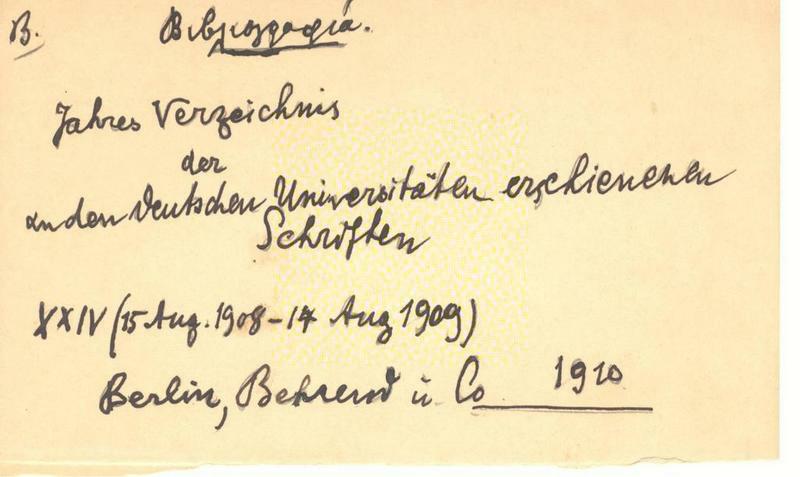 B. Библиографія.
Jahres Verzeichnis
der
an den Deutschen Universitäten erschienenen
Schriften
XXIV (15 Aug. 1908-14 Aug 1909)
Berlin, Behrend u Co 1910